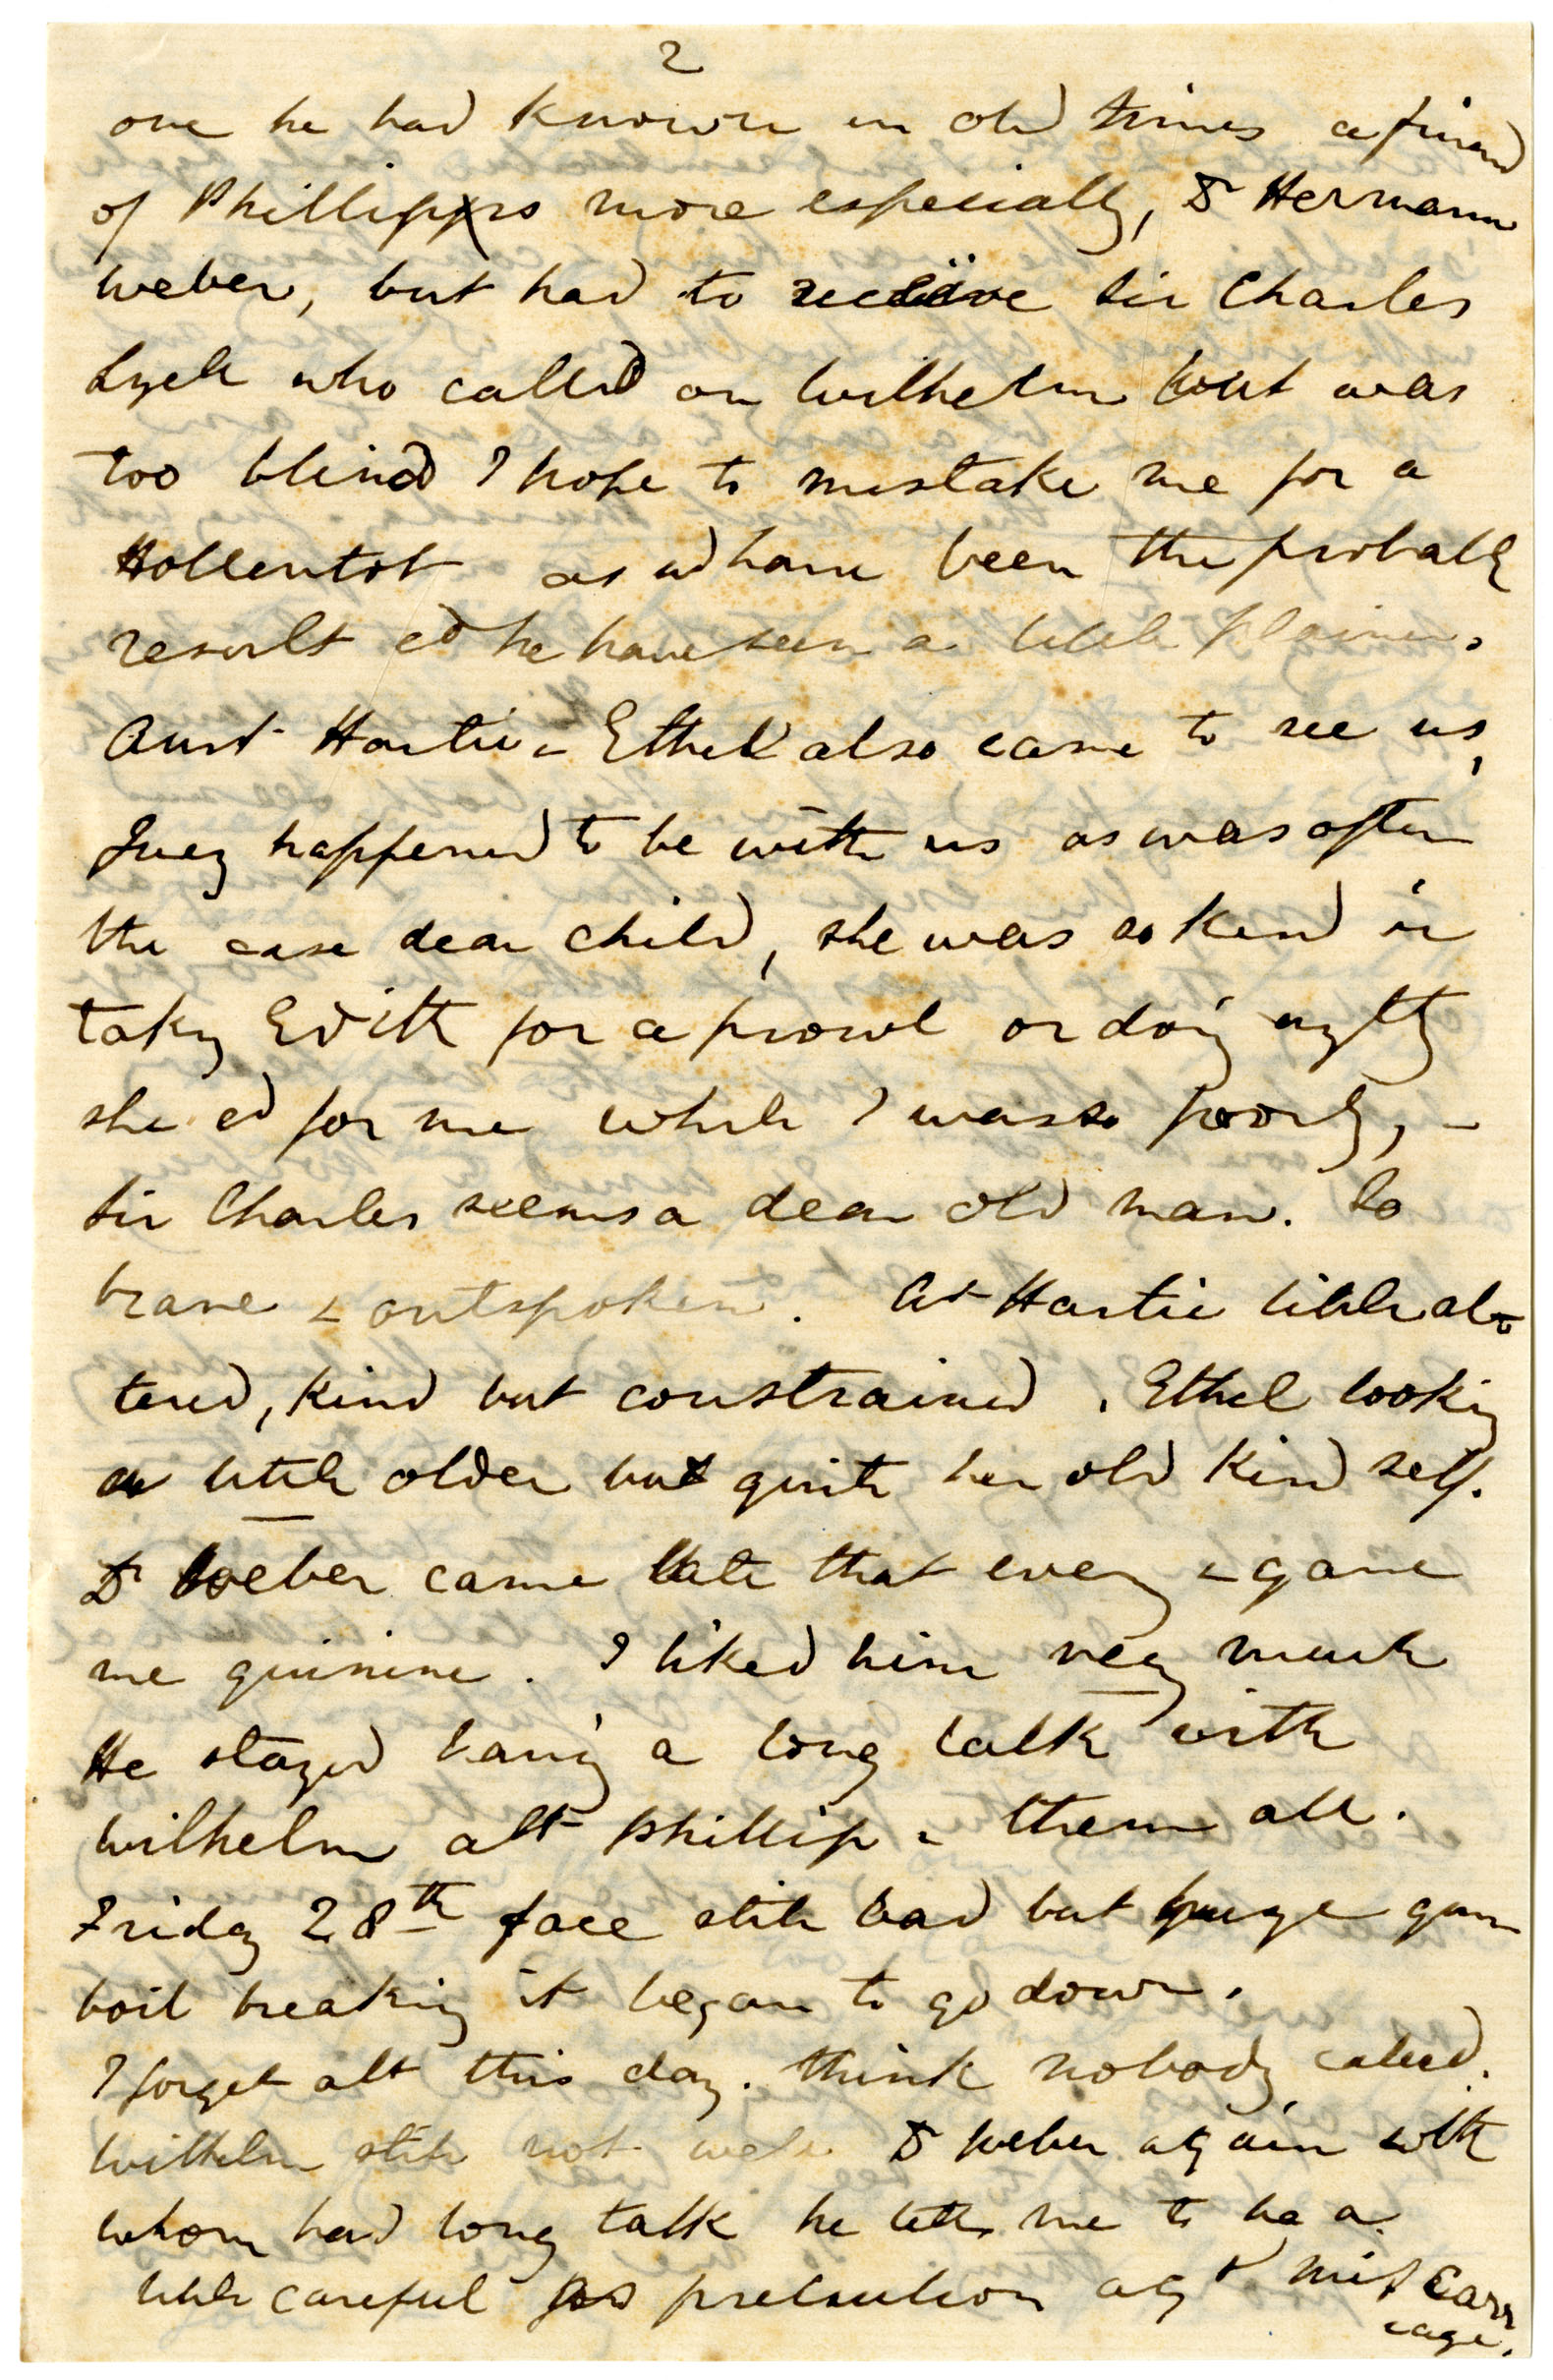 2
one he had known in old times a friend
of Phillipps more especially, Dr Hermann
Weber, but had to receive Sir Charles
Lyell who called on Wilhelm but was
too blind I hope to mistake me for a
Hottentot as wd have been the probable
result cd he have seen a little plainer.
Aunt Hartie & Ethel also came to see us,
Lucy happened to be with us as was often
the case dear child, she was so kind in
taky Edith for a prowl or doig anythg
she cd for me while I was so poorly, –
Sir Charles seems a dear old man. So
brave & outspoken. At Hartie little al-
tered, kind but constrained. Ethel lookig
a little older but quite her old kind self.
Dr Weber came late that eveng & gave
me quinine. I liked him very much
He stayed havig a long talk with
Wilhelm abt Phillip & them all.
Friday 28th face still bad but huge gum
boil breakig it began to go down.
I forget abt this day. think nobody called.
Wilhelm still not well Dr Weber again with
whom had long talk he tells me to be a
little careful as precaution agt miscarr
iage.